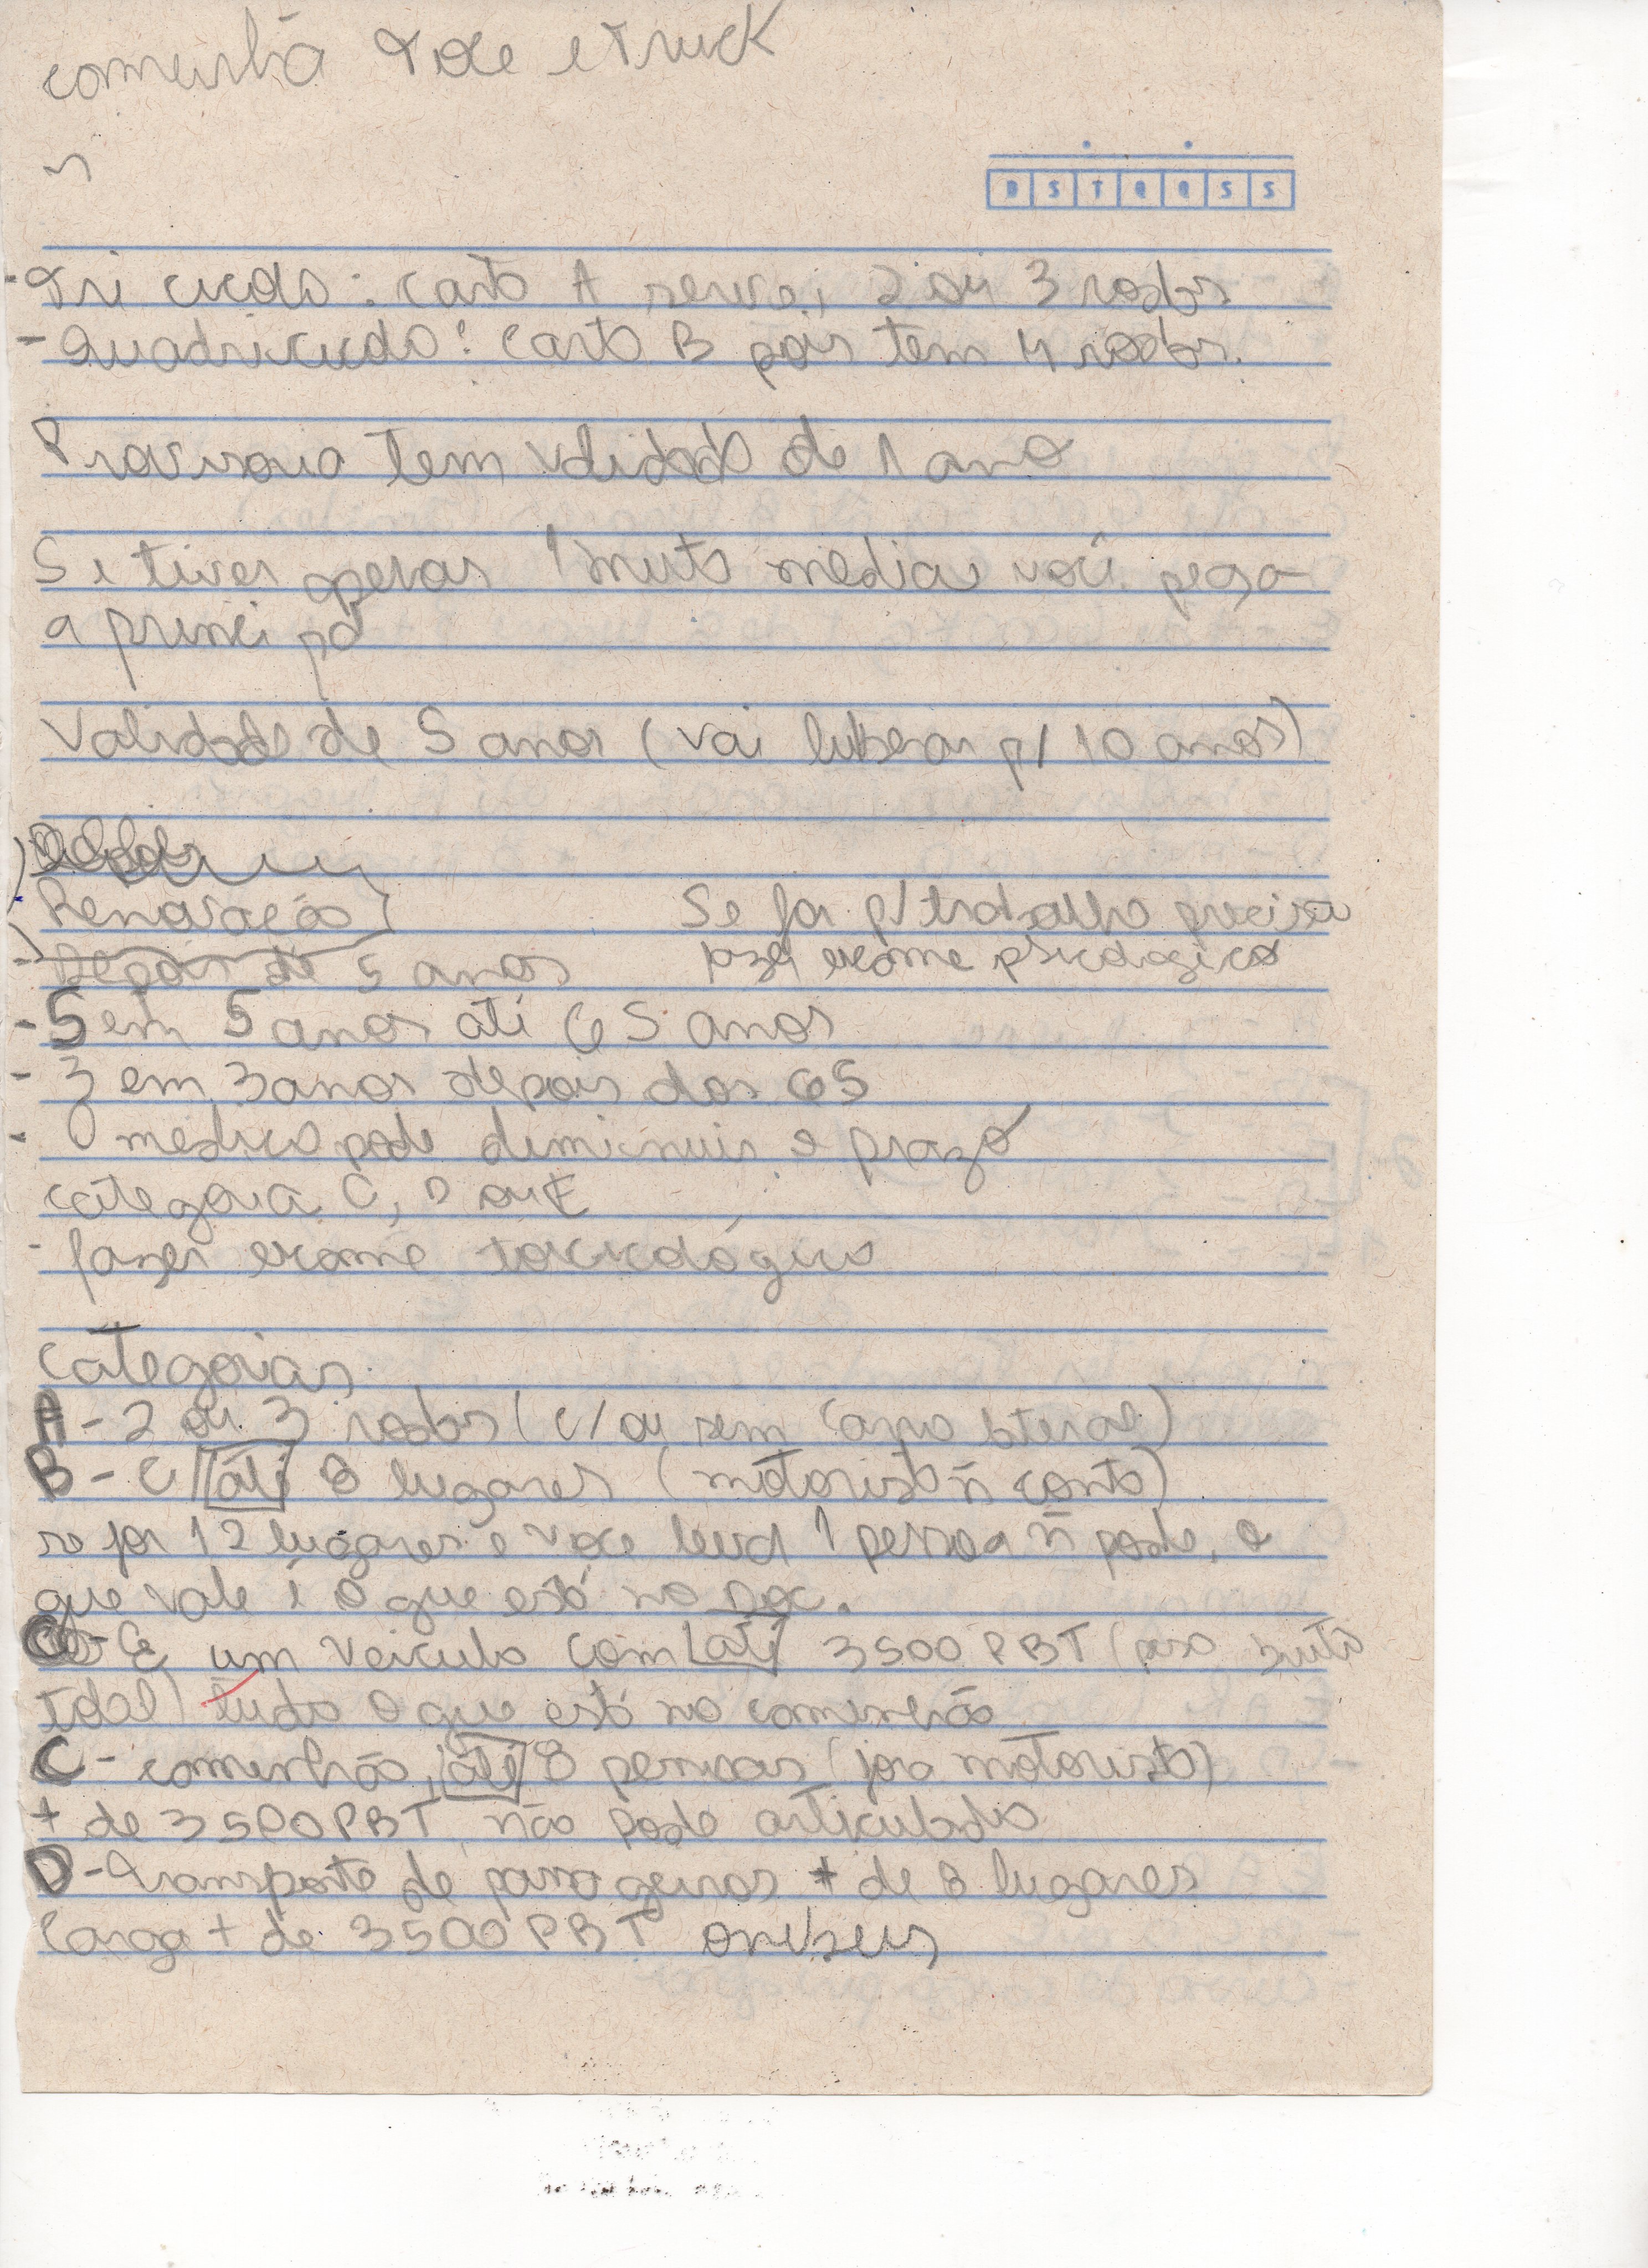 caminhã toce e truck
D S T Q Q S S
- Tri ciclo: carta A serve, 2 ou 3 rodas
- Quadriciclo: carta B pois tem 4 rodas.
Provisoria tem validade de 1 ano
Se tiver apenas 1 multa média você pega
a princi pal
Validade de 5 anos (vai liberar p/ 10 anos)
Renovação
Se for p/ trabalho precisa
fazer exame psicologico
- Depois de 5 anos
- 5 em 5 anos até 65 anos
- 3 em 3 anos depois dos 65
- O medico pode diminuir o prazo
categoria C, D ou E
- fazer exame toxicológico
Categorias
A - 2 ou 3 rodas (c/ ou sem carro lateral)
B - C/ até 8 lugares (motorista ñ conta)
se for 12 lugares e voce levar 1 pessoa ñ pode, o
que vale é o que está no Doc.
um veiculo com até 3500 PBT (peso bruto
total) tudo o que está no caminhão
C - caminhão, até 8 pessoas (fora motorista)
+ de 3500 PBT, não pode articulado
D - Transporte de passageiros + de 8 lugares
Carga + de 3500 PBT onibus